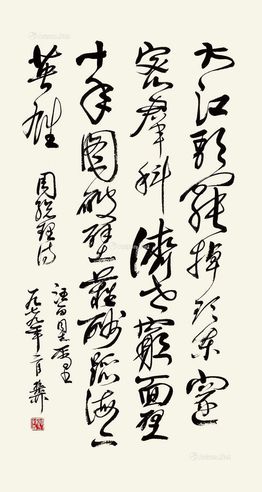 大江歌罷掉頭東邃
密群科濟世窮面壁
十年圖破壁難酬蹈海亦
英雄 周總理詩
一九七九年二月